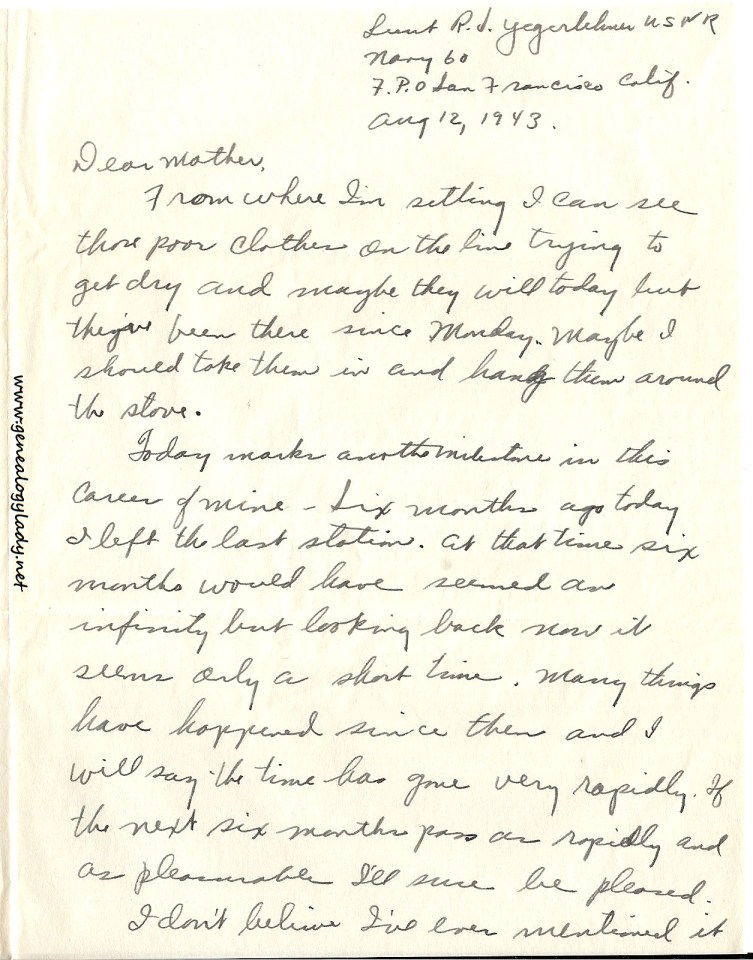 Lieut R. J. Yegerlehner USNR
Navy 60
F.P.O San Francisco Calif.
Aug 12, 1943.
Dear Mother,
From where I'm sitting I can see
those poor clothes on the line trying to
get dry and maybe they will today but
they've been there since Monday. Maybe I
should take them in and hang them around
the stove.
Today marks another milestone in this
career of mine - Six months ago today
I left the last station. At that time six
months would have seemed an
infinity but looking back now it
seems only a short time. Many things
have happened since then and I
will say the time has gone very rapidly. If
the next six months pass as rapidly and
as pleasurable I'll sure be pleased.
I don't believe I've ever mentioned it
www.genealogylady.net